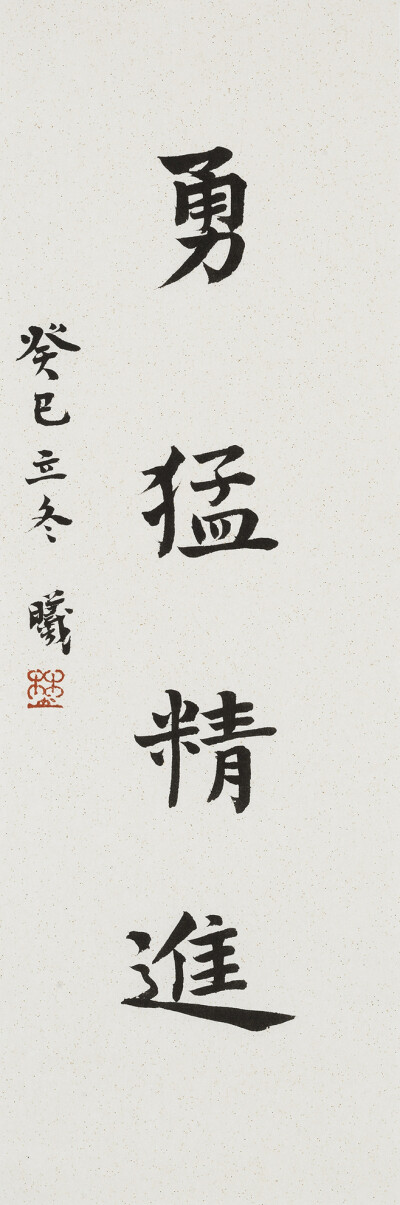 勇猛精進
癸巳立冬 曦